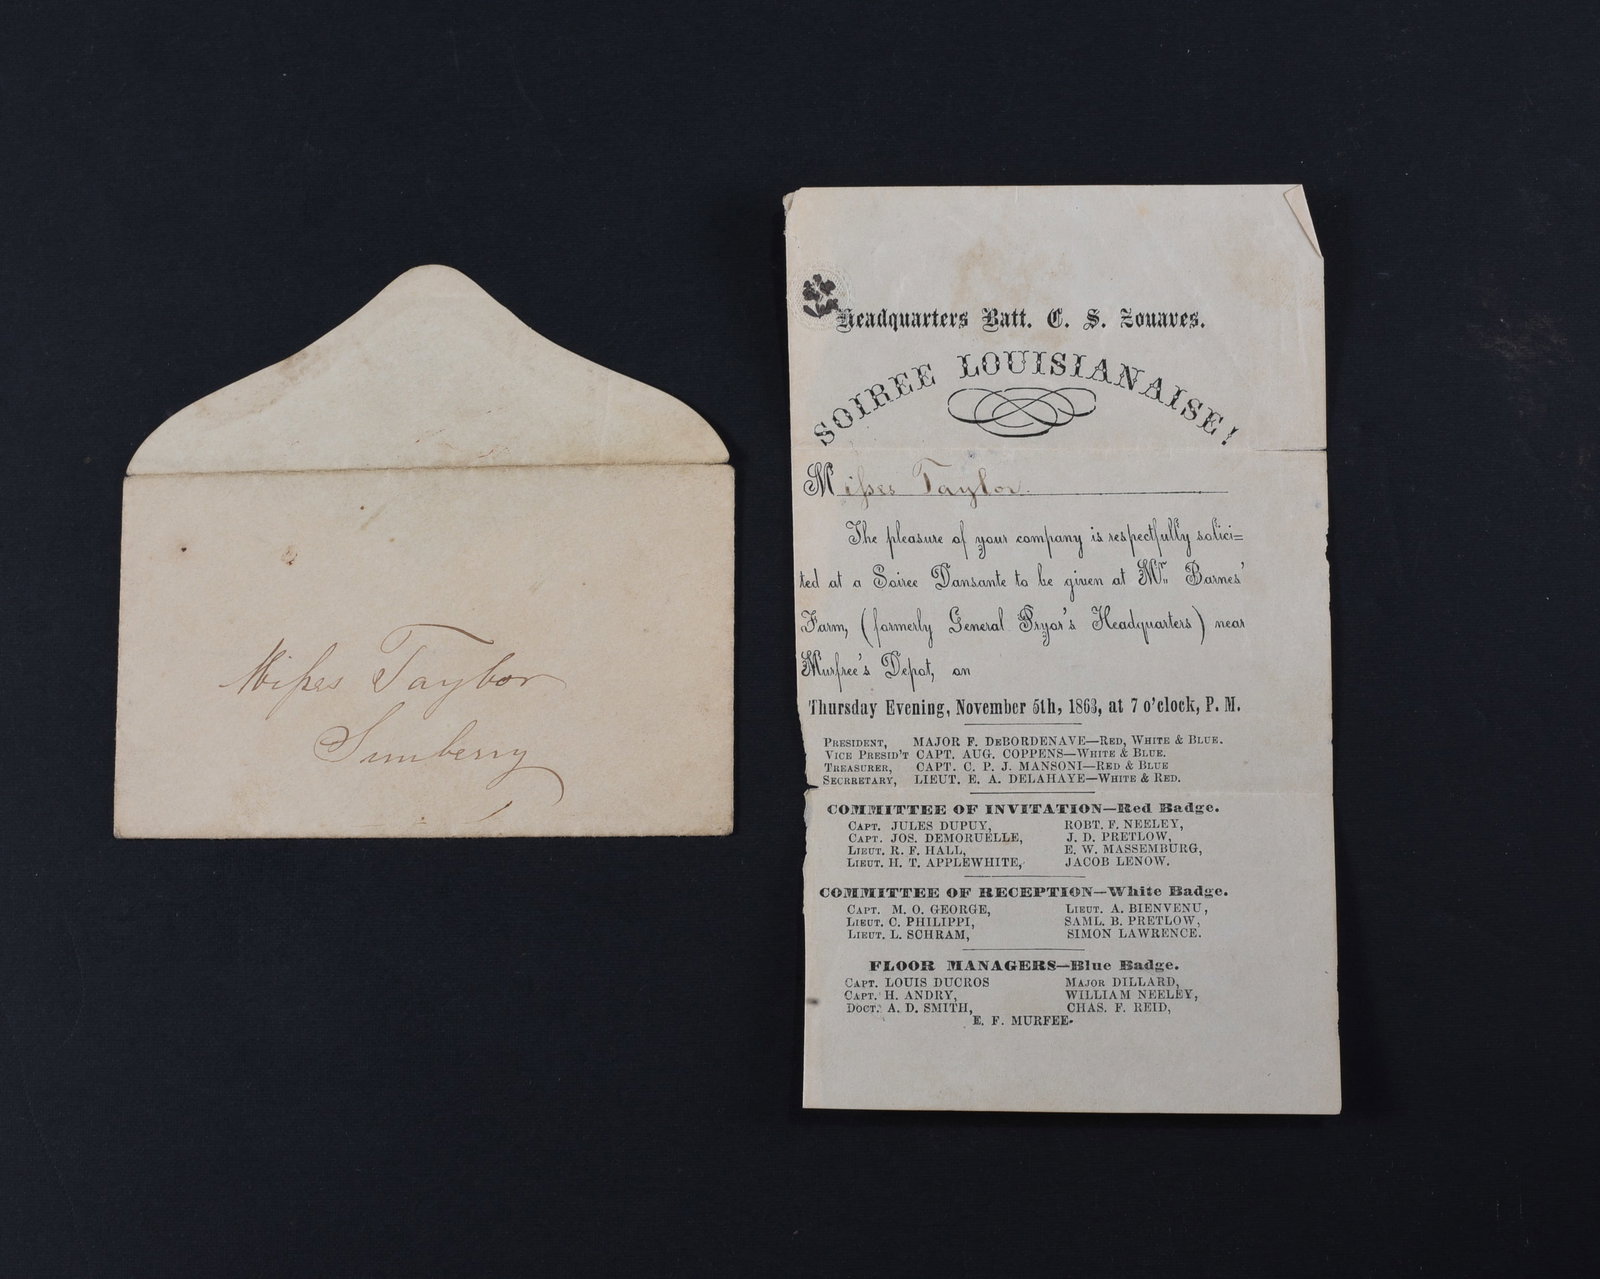 Misses Taylor
Sunberry
Headquarters Batt. C. S. Zouaves.
SOIREE LOUISIANAISE!
Misses Taylor.
The pleasure of your company is respectfully solici=
ted at a Soiree Dansante to be given at Mr. Barnes'
Farm, (formerly General Pryor's Headquarters) near
Murfree's Depot, on
Thursday Evening, November 5th, 1863, at 7 o'clock, P. M.
PRESIDENT, MAJOR F. DEBORDENAVE—RED, WHITE & BLUE.
VICE PRESID'T CAPT. AUG. COPPENS—WHITE & BLUE.
TREASURER, CAPT. C. P. J. MANSONI—RED & BLUE
SECRRETARY, LIEUT. E. A. DELAHAYE—WHITE & RED.
COMMITTEE OF INVITATION—Red Badge.
CAPT. JULES DUPUY, ROBT. F. NEELEY,
CAPT. JOS. DEMORUELLE, J. D. PRETLOW,
LIEUT. R. F. HALL, E. W. MASSEMBURG,
LIEUT. H. T. APPLEWHITE, JACOB LENOW.
COMMITTEE OF RECEPTION—White Badge.
CAPT. M. O. GEORGE, LIEUT. A. BIENVENU,
LIEUT. C. PHILIPPI, SAML. B. PRETLOW,
LIEUT. L. SCHRAM, SIMON LAWRENCE.
FLOOR MANAGERS—Blue Badge.
CAPT. LOUIS DUCROS MAJOR DILLARD,
CAPT. H. ANDRY, WILLIAM NEELEY,
DOCT. A. D. SMITH, CHAS. F. REID,
E. F. MURFEE.